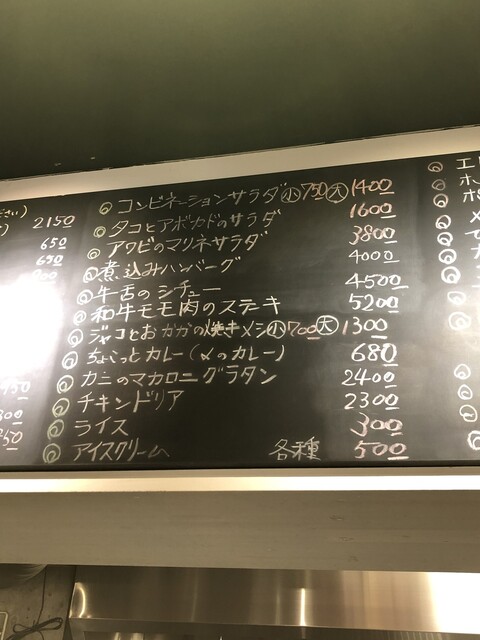 ださい)
2150
650
650
コンビネーションサラダ 小 750 大 1400
タコとアボカドのサラダ 1600
アワビのマリネサラダ 3800
煮込みハンバーグ 4000
牛舌のシチュー 4500
和牛モモ肉のステーキ 5200
ジャコとおカカの焼きメシ 小 700 大 1300
ちょこっとカレー(〆のカレー) 680
カニのマカロニグラタン 2400
チキンドリア 2300
ライス 300
アイスクリーム 各種 500